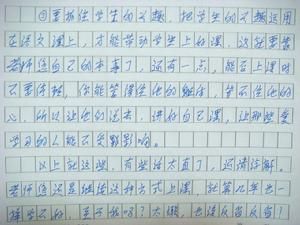 ③要抓住学生的兴趣，把学生的兴趣运用
在语文课上，才能带动学生上好课，这就要看
老师您自己的本事了，还有一点，能否上课时
不要停顿，你能管得住他的躯体，管不住他的
心，所以让他们说去，讲你自己课，让那些要
学习的人能不受影响。
以上就这些，有些话太直了，还请谅解。
老师您还是继续这种方式上课，就算几年也一
样学不好，至于我吗？大概，也该反省反省！